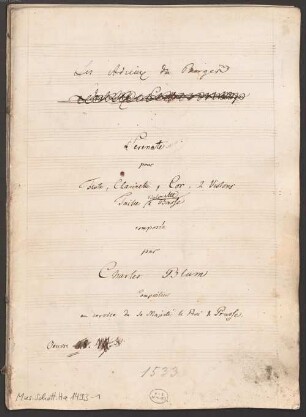 Les Adieux du Berger
Serenate
pour
Flute, Clarinette, Cor, 2 Violons
Violoncelle
et Basse
composée
par
Charles Blum
Compositeur
au service de Sa Majesté le Roi de Prusse.
Oeuvre
1533
Mus. Schott. Ha 1433-1